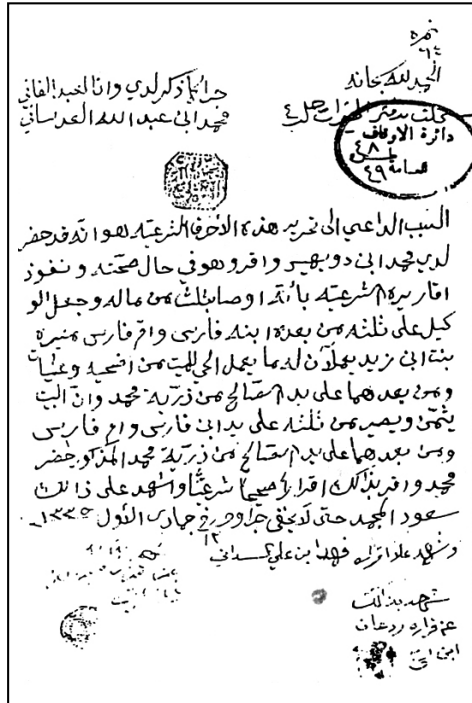 نمره
٦٤
الحمد لله سبحانه
جرا كما ذكر لدي وانا العبد الفاني
محمد ابن عبد الله العدساني
دائرة الاوقاف
٤٨
٤٩
السبب الداعي الى تحرير هذه الاحرف الشرعيه هو انه قد حضر
لدي محمد ابن دويهيس واقر وهو في حال صحته ونفوذ
اقاريره الشرعيه بأنه اوصا بثلث من ماله وجعل الو
كيل على ثلثه من بعده ابنه فارس وام فارس منيره
بنت ابن زيد يعملان له ما يعمل الحي للميت من اضحيه وعشيات
ومن بعدهما على يد الصالح من ذرية محمد وان البيت
يثمن ويصير من ثلثه على يد ابن فارس وام فارس
ومن بعدهما على يد الصالح من ذرية محمد المذكور حضر
محمد واقر بذالك اقرارا صحيحا شرعيا واشهد على ذالك
سعود المحمد حتى لا يخفى جرا وحرر في جمادى الأول ١٣٣٥
١٢
وشهد على اقراره فهد ابن علي
شهد بذالك
ابن